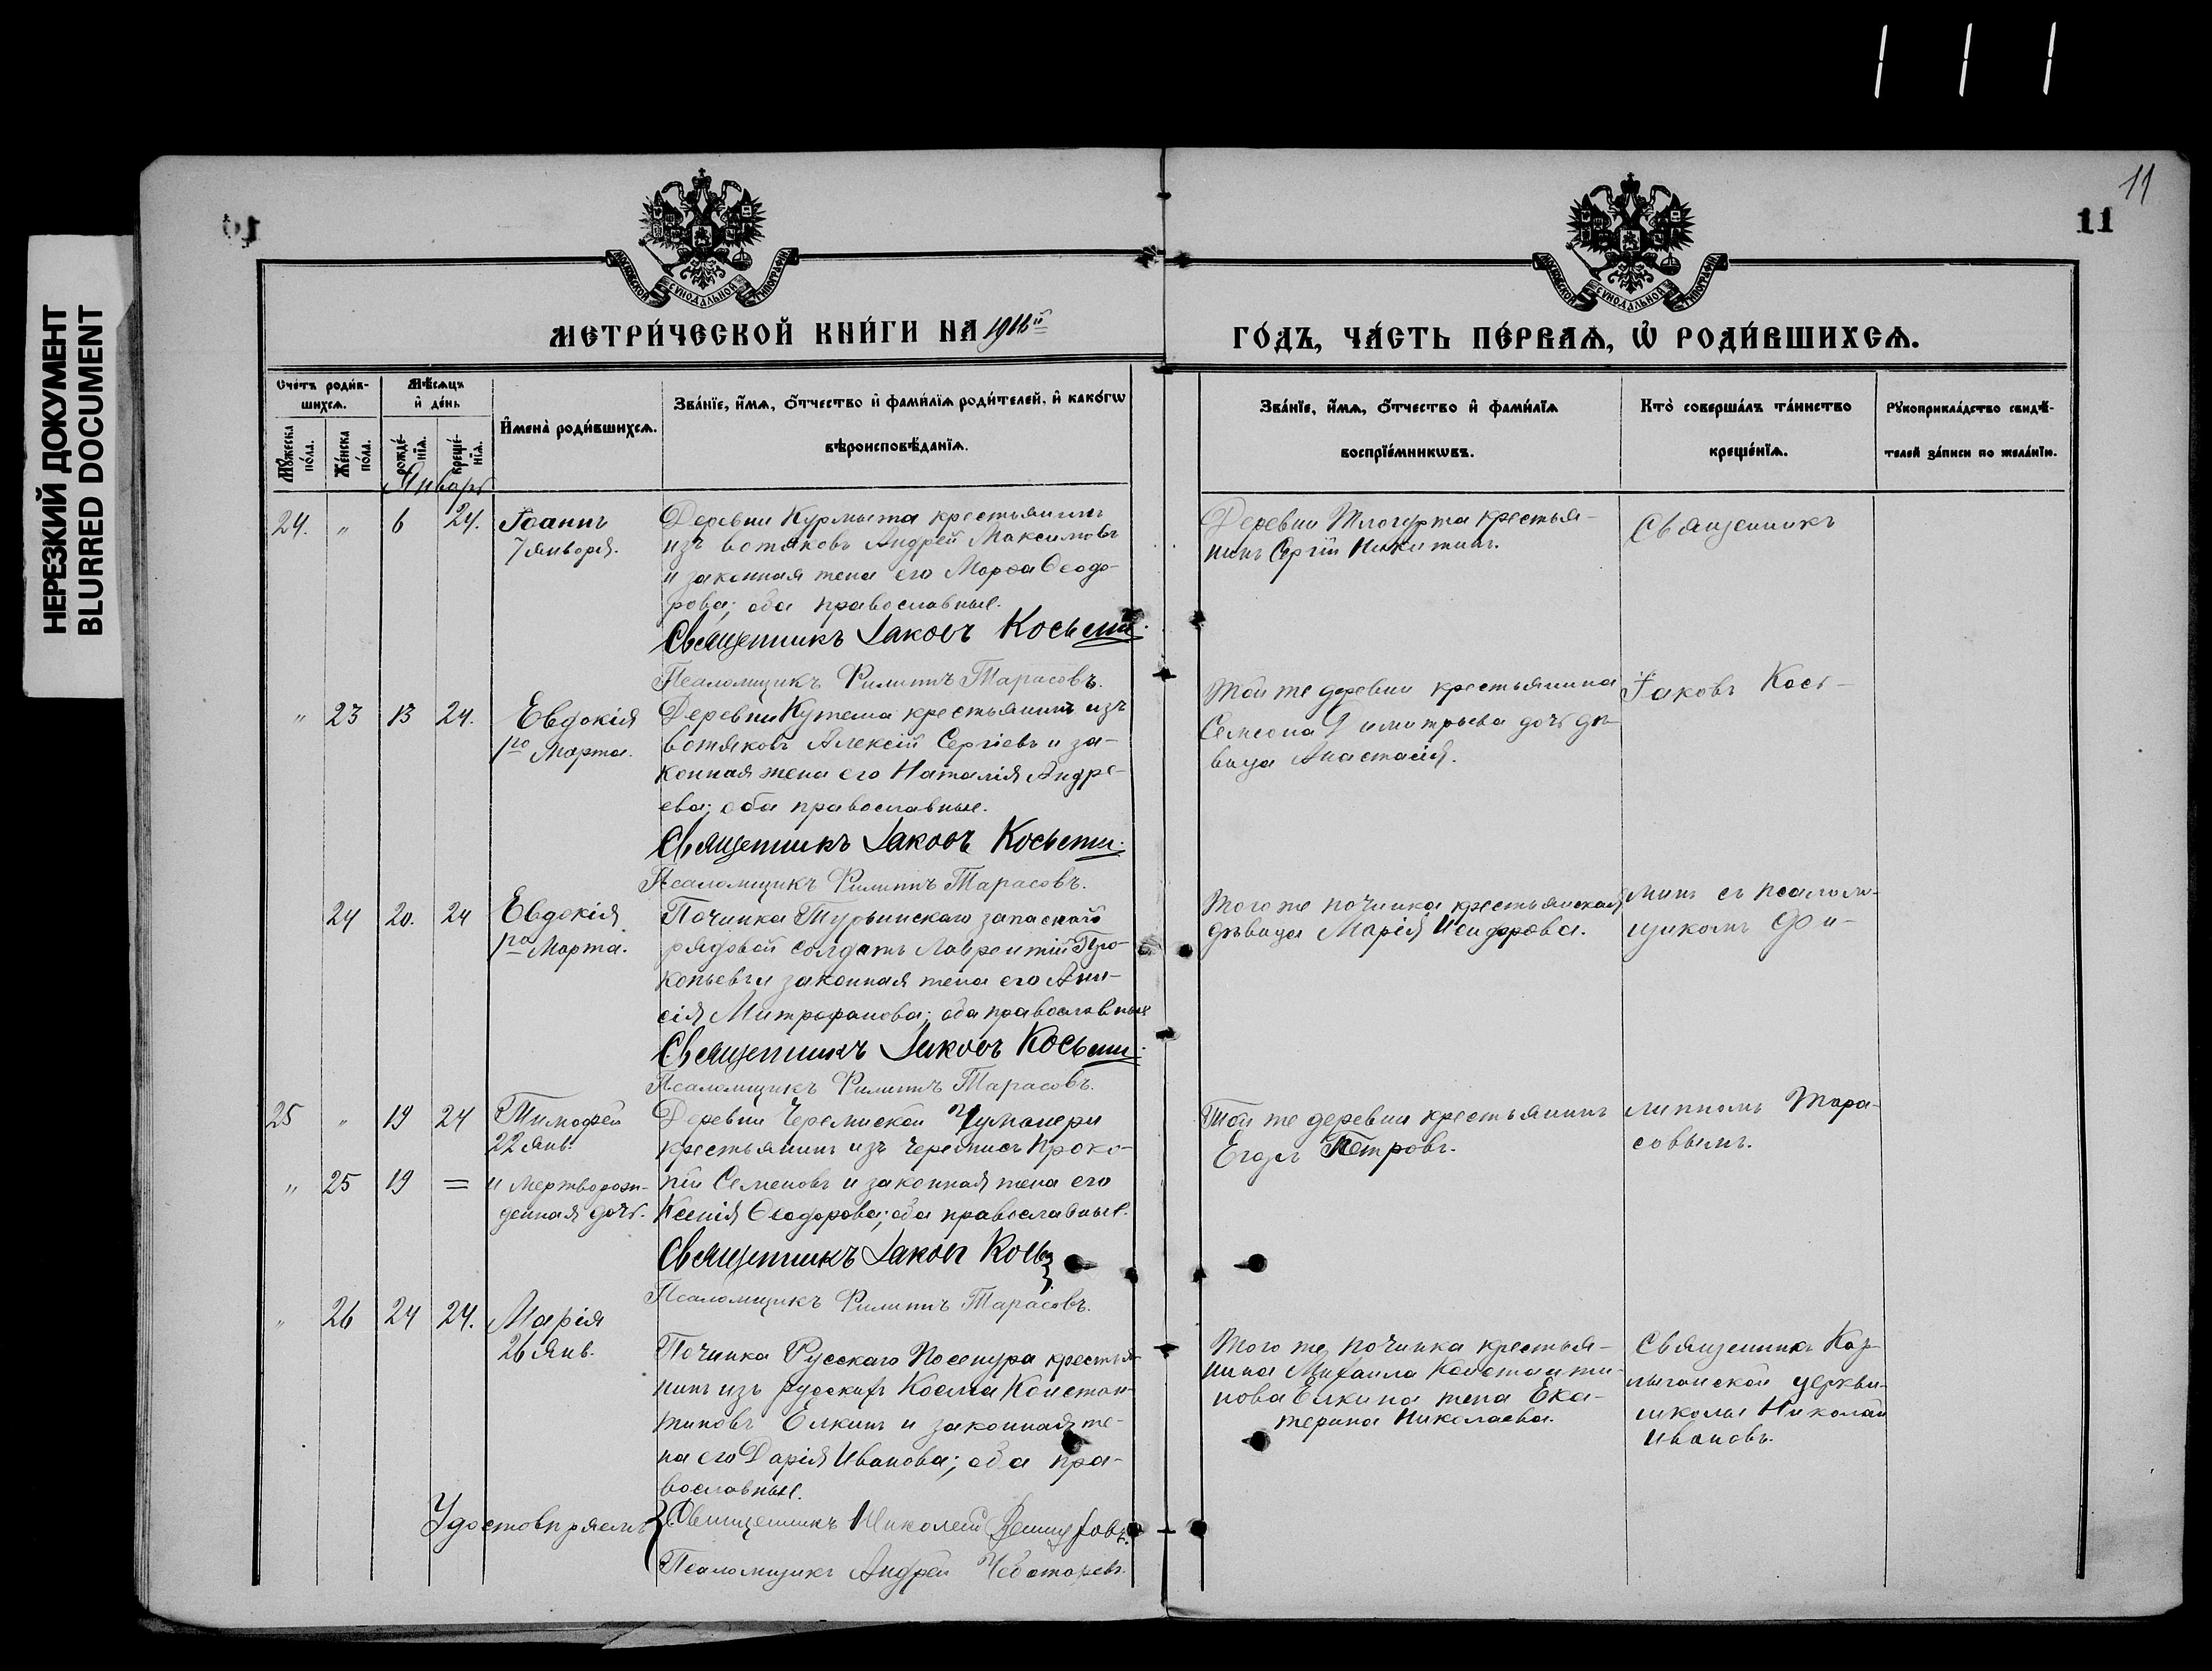 НЕРЕЗКИЙ ДОКУМЕНТ
BLURRED DOCUMENT
11
11
МОСКОВСКОЙ СѴНОДАЛЬНОЙ ТИПОГРАФІИ
МОСКОВСКОЙ СѴНОДАЛЬНОЙ ТИПОГРАФІИ
МЕТРИ́ЧЕСКОЙ КНИ́ГИ НА 1916й
ГО́ДЪ, ЧА́СТЬ ПЕ́РВАѦ, Ѡ҆ РОДИ́ВШИХСѦ.
Сче́тъ роди́в-
шихсѧ.
Мꙋ́жеска по́ла.
Же́нска по́ла.
Мѣ́сѧцъ
и҆ де́нь
рожде́нїѧ.
креще́нїѧ.
И҆мена̀ роди́вшихсѧ.
Зва́нїе, и҆́мѧ, ѻ҆́тчество и҆ фами́лїѧ роди́телей, и҆ како́гѡ
вѣроисповѣ́данїѧ.
Зва́нїе, и҆́мѧ, ѻ҆́тчество и҆ фами́лїѧ
воспрїе́мникѡвъ.
Кто̀ соверша́лъ та́инство
креще́нїѧ.
Рꙋкоприкла́дство свидѣ́-
телей за́писи по жела́нїю.
Январь
24. " 6 24. Іоаннъ
7 января.
Деревни Курмыта крестьянинъ
изъ вотяковъ Андрей Максимовъ
и законная жена его Марѳа Ѳеодо-
рова; оба православные.
Священникъ Іаковъ
Псаломщикъ Филиппъ Тарасовъ.
Деревни крестья-
нинъ Сергій Никитинъ.
Священникъ
" 23 13 24. Евдокія
1го Марта.
Деревни Кутема крестьянинъ изъ
вотяковъ Алексій Сергіевъ и за-
конная жена его Наталія Андре-
ева; оба православные.
Священникъ Іаковъ
Псаломщикъ Филиппъ Тарасовъ.
Той же деревни крестьянина
Симеона Димитріева дочь дѣ-
вица Анастасія.
Іаковъ
24 20. 24 Евдокія
1го Марта.
Починка Турьинскаго запасного
рядовой солдатъ Лаврентій Про-
копьевъ и законная жена его Ани-
сія Митрофанова; оба православные
Священникъ Іаковъ
Псаломщикъ Филиппъ Тарасовъ.
Того же починка крестьянская
дѣвица Марія Исидорова.
минъ съ псалом-
щикомъ Фи-
25 " 19 24 Тимофей
22 Янв.
Деревни Черемиской
крестьянинъ изъ черемисъ Проко-
Той же деревни крестьянинъ
Егоръ Петровъ.
липпомъ Тара-
совымъ.
" 25 19 = и мертворож-
денная дочь.
пій Семеновъ и законная жена его
Ксенія Ѳеодорова; оба православные.
Священникъ Іаковъ
Псаломщикъ Филиппъ Тарасовъ.
" 26 24 24. Марія
26 Янв.
Починка Русскаго крестья-
нинъ изъ русскихъ Косма Констан-
тиновъ Елкинъ и законная же-
на его Дарія Иванова; оба пра-
вославные.
Того же починка крестья-
нина Михаила Константи-
нова Елкина жена Ека-
терина Николаева.
Священникъ Кар-
лыганской церкви-
школы Николай
Ивановъ.
Удостовѣряемъ
Священникъ Николай
Псаломщикъ Андрей Чеботаревъ.